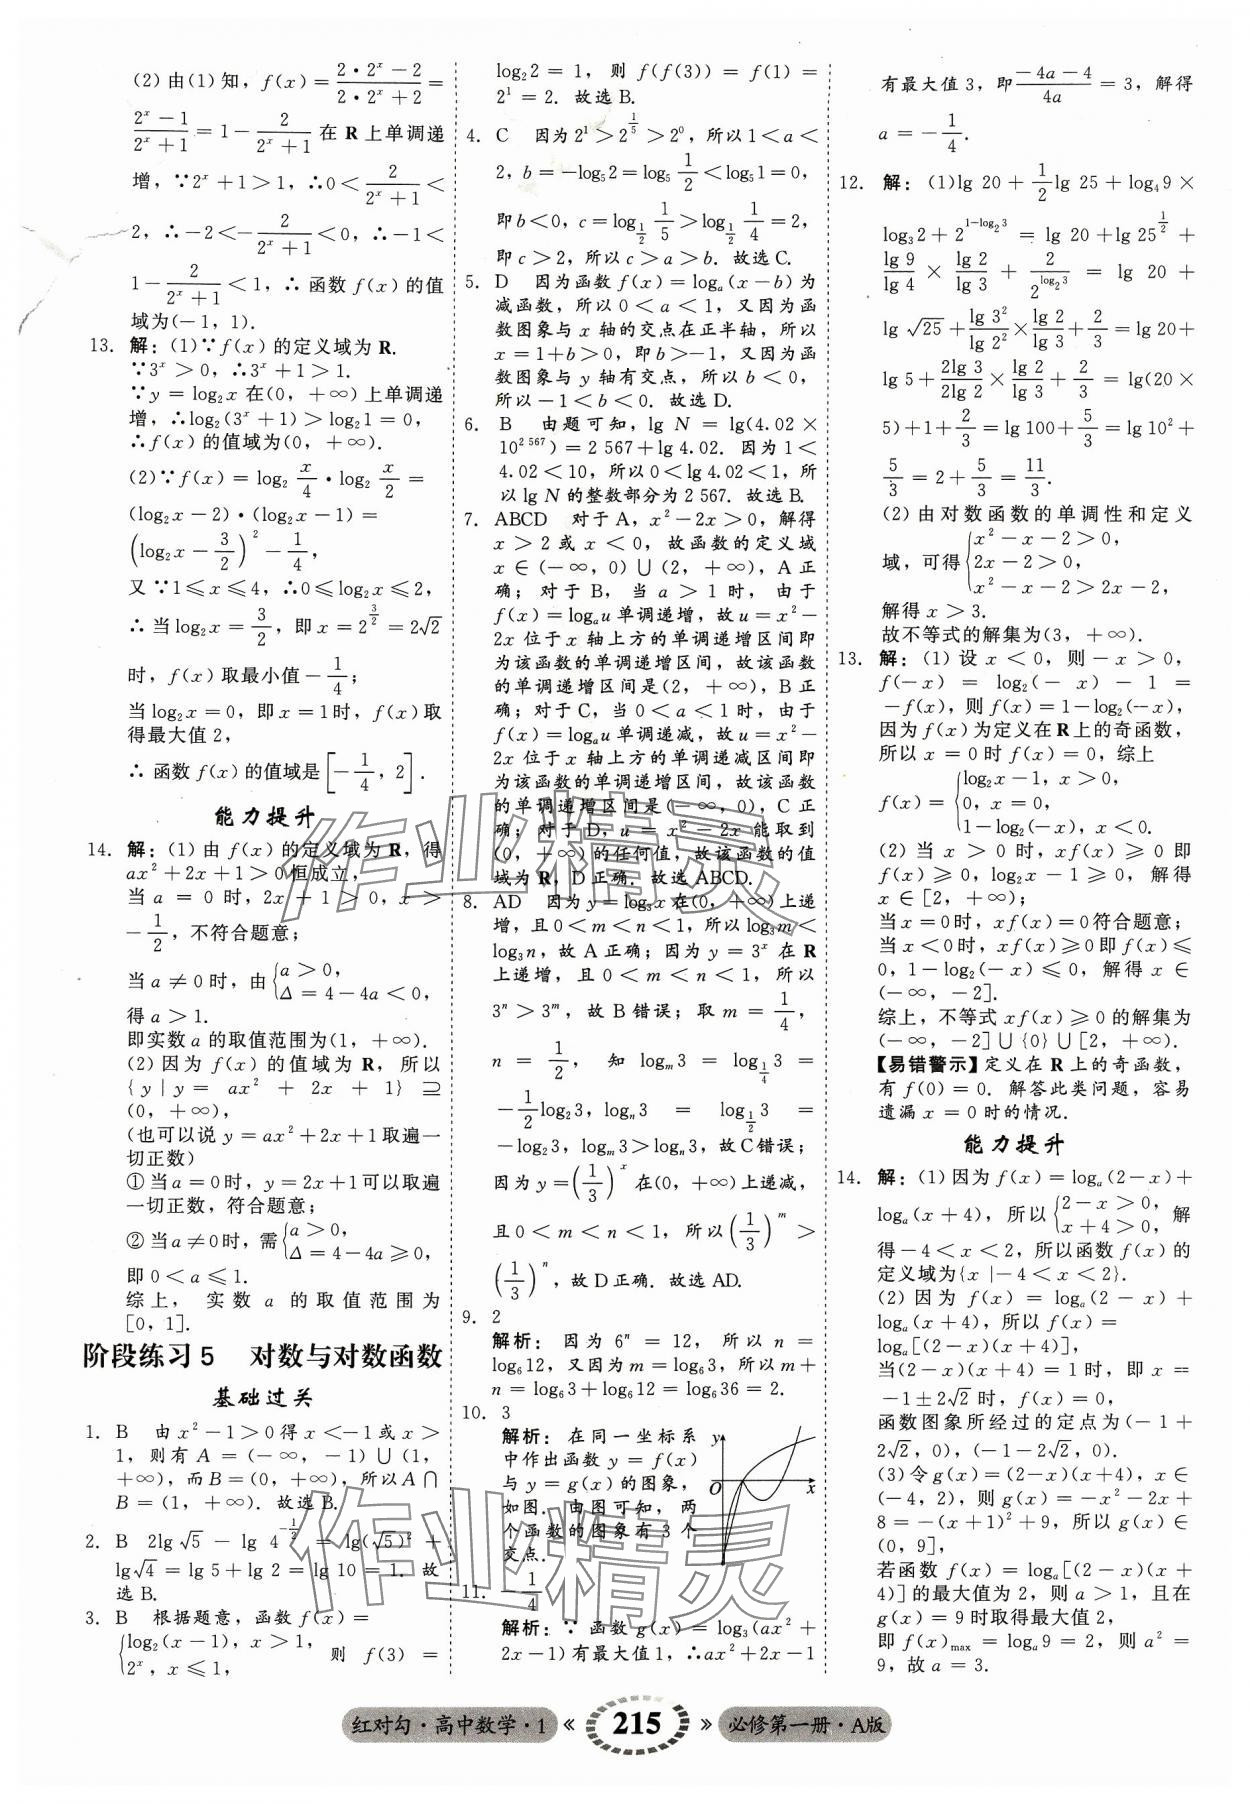 (2)由(1)知，f(x)=(2·2ˣ−2)/(2·2ˣ+2)=
(2ˣ−1)/(2ˣ+1)=1−2/(2ˣ+1)在R上单调递
增，∵2ˣ+1>1，∴0<2/(2ˣ+1)<
2，∴−2<−2/(2ˣ+1)<0，∴−1<
1−2/(2ˣ+1)<1，∴函数f(x)的值
域为(−1，1).
13. 解：(1)∵f(x)的定义域为R.
∵3ˣ>0，∴3ˣ+1>1.
∵y=log₂x在(0，+∞)上单调递
增，∴log₂(3ˣ+1)>log₂1=0，
∴f(x)的值域为(0，+∞).
(2)∵f(x)=log₂(x/4)·log₂(x/2)=
(log₂x−2)·(log₂x−1)=
(log₂x−3/2)²−1/4，
又∵1≤x≤4，∴0≤log₂x≤2，
∴当log₂x=3/2，即x=2^(3/2)=2√2
时，f(x)取最小值−1/4；
当log₂x=0，即x=1时，f(x)取
得最大值2，
∴函数f(x)的值域是[−1/4，2].
能力提升
14. 解：(1)由f(x)的定义域为R，得
ax²+2x+1>0恒成立，
当a=0时，2x+1>0，x>
−1/2，不符合题意；
当a≠0时，由{a>0，Δ=4−4a<0，
得a>1.
即实数a的取值范围为(1，+∞).
(2)因为f(x)的值域为R，所以
{y|y=ax²+2x+1}⊇
(0，+∞)，
(也可以说y=ax²+2x+1取遍一
切正数)
①当a=0时，y=2x+1可以取遍
一切正数，符合题意；
②当a≠0时，需{a>0，Δ=4−4a≥0，
即0<a≤1.
综上，实数a的取值范围为
[0，1].
阶段练习5　对数与对数函数
基础过关
1. B　由x²−1>0得x<−1或x>
1，则有A=(−∞，−1)∪(1，
+∞)，而B=(0，+∞)，所以A∩
B=(1，+∞). 故选B.
2. B　2lg√5−lg 4^(−1/2)=lg(√5)²+
lg√4=lg 5+lg 2=lg 10=1. 故
选B.
3. B　根据题意，函数f(x)=
{log₂(x−1)，x>1，2ˣ，x≤1，　则f(3)=
log₂2=1，则f(f(3))=f(1)=
2¹=2. 故选B.
4. C　因为2¹>2^(1/5)>2⁰，所以1<a<
2，b=−log₅2=log₅(1/2)<log₅1=0，
即b<0，c=log_(1/2)(1/5)>log_(1/2)(1/4)=2，
即c>2，所以c>a>b. 故选C.
5. D　因为函数f(x)=logₐ(x−b)为
减函数，所以0<a<1，又因为函
数图象与x轴的交点在正半轴，所以
x=1+b>0，即b>−1，又因为函
数图象与y轴有交点，所以b<0，
所以−1<b<0. 故选D.
6. B　由题可知，lg N=lg(4.02×
10^(2 567))=2 567+lg 4.02. 因为1<
4.02<10，所以0<lg 4.02<1，所
以lg N的整数部分为2 567. 故选B.
7. ABCD　对于A，x²−2x>0，解得
x>2或x<0，故函数的定义域
x∈(−∞，0)∪(2，+∞)，A正
确；对于B，当a>1时，由于
f(x)=logₐu单调递增，故u=x²−
2x位于x轴上方的单调递增区间即
为该函数的单调递增区间，故该函数
的单调递增区间是(2，+∞)，B正
确；对于C，当0<a<1时，由于
f(x)=logₐu单调递减，故u=x²−
2x位于x轴上方的单调递减区间即
为该函数的单调递增区间，故该函数
的单调递增区间是(−∞，0)，C正
确；对于D，u=x²−2x能取到
(0，+∞)的任何值，故该函数的值
域为R，D正确. 故选ABCD.
8. AD　因为y=log₃x在(0，+∞)上递
增，且0<m<n<1，所以log₃m<
log₃n，故A正确；因为y=3ˣ在R
上递增，且0<m<n<1，所以
3ⁿ>3ᵐ，故B错误；取m=1/4，
n=1/2，知logₘ3=log_(1/4)3=
−(1/2)log₂3，logₙ3=log_(1/2)3=
−log₂3，logₘ3>logₙ3，故C错误；
因为y=(1/3)ˣ在(0，+∞)上递减，
且0<m<n<1，所以(1/3)ᵐ>
(1/3)ⁿ，故D正确. 故选AD.
9. 2
解析：因为6ⁿ=12，所以n=
log₆12，又因为m=log₆3，所以m+
n=log₆3+log₆12=log₆36=2.
10. 3
解析：在同一坐标系
中作出函数y=f(x)
与y=g(x)的图象，
如图. 由图可知，两
个函数的图象有3个
交点.
y
O
x
11. −1/4
解析：∵函数g(x)=log₃(ax²+
2x−1)有最大值1，∴ax²+2x−1
有最大值3，即(−4a−4)/4a=3，解得
a=−1/4.
12. 解：(1)lg 20+(1/2)lg 25+log₄9×
log₃2+2^(1−log₂3)=lg 20+lg25^(1/2)+
(lg 9/lg 4)×(lg 2/lg 3)+2/2^(log₂3)=lg 20+
lg√25+(lg 3²/lg 2²)×(lg 2/lg 3)+2/3=lg 20+
lg 5+(2lg 3/2lg 2)×(lg 2/lg 3)+2/3=lg(20×
5)+1+2/3=lg 100+5/3=lg 10²+
5/3=2+5/3=11/3.
(2)由对数函数的单调性和定义
域，可得{x²−x−2>0，2x−2>0，x²−x−2>2x−2，
解得x>3.
故不等式的解集为(3，+∞).
13. 解：(1)设x<0，则−x>0，
f(−x)=log₂(−x)−1=
−f(x)，则f(x)=1−log₂(−x)，
因为f(x)为定义在R上的奇函数，
所以x=0时f(x)=0，综上
f(x)={log₂x−1，x>0，0，x=0，1−log₂(−x)，x<0.
(2)当x>0时，xf(x)≥0即
f(x)≥0，log₂x−1≥0，解得
x∈[2，+∞)；
当x=0时，xf(x)=0符合题意；
当x<0时，xf(x)≥0即f(x)≤
0，1−log₂(−x)≤0，解得x∈
(−∞，−2].
综上，不等式xf(x)≥0的解集为
(−∞，−2]∪{0}∪[2，+∞).
【易错警示】定义在R上的奇函数，
有f(0)=0. 解答此类问题，容易
遗漏x=0时的情况.
能力提升
14. 解：(1)因为f(x)=logₐ(2−x)+
logₐ(x+4)，所以{2−x>0，x+4>0，解
得−4<x<2，所以函数f(x)的
定义域为{x|−4<x<2}.
(2)因为f(x)=logₐ(2−x)+
logₐ(x+4)，所以f(x)=
logₐ[(2−x)(x+4)]，
当(2−x)(x+4)=1时，即x=
−1±2√2时，f(x)=0，
函数图象所经过的定点为(−1+
2√2，0)，(−1−2√2，0).
(3)令g(x)=(2−x)(x+4)，x∈
(−4，2)，则g(x)=−x²−2x+
8=−(x+1)²+9，所以g(x)∈
(0，9]，
若函数f(x)=logₐ[(2−x)(x+
4)]的最大值为2，则a>1，且在
g(x)=9时取得最大值2，
即f(x)max=logₐ9=2，则a²=
9，故a=3.
红对勾·高中数学·1 《 215 》 必修第一册·A版
作业精灵
作业精灵